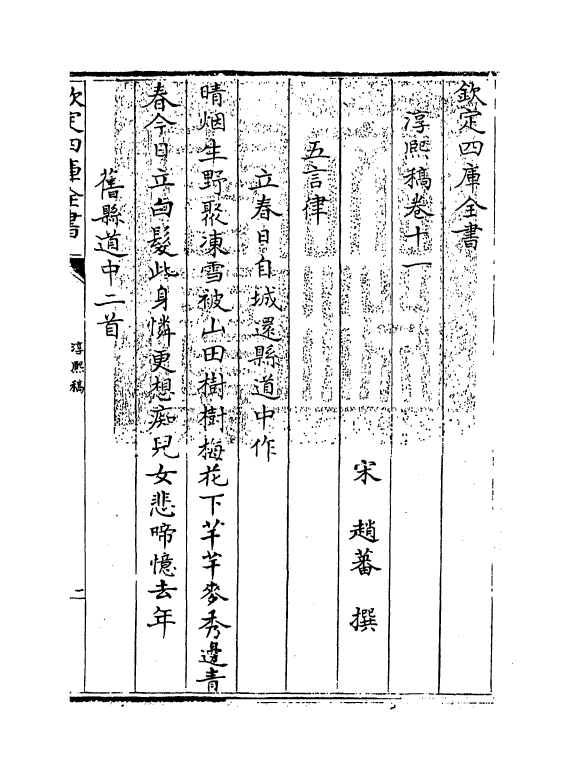 欽定四庫全書
淳熙稿卷十一
宋 趙蕃 撰
五言律
立春日自城還縣道中作
晴烟生野聚凍雪被山田樹樹梅花下芊芊麥秀邊青
春今日立白髮此身憐更想癡兒女悲啼憶去年
舊縣道中二首
欽定四庫全書
淳熙稿